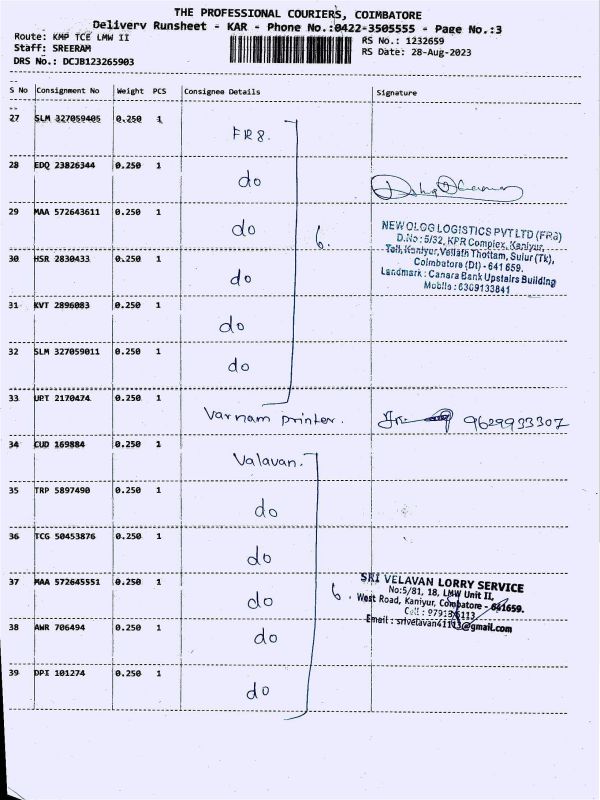 THE PROFESSIONAL COURIERS, COIMBATORE
Delivery Runsheet - KAR - Phone No.:0422-3505555 - Page No.:3
Route: KMP TCE LMW II
RS No.: 1232659
Staff: SREERAM
RS Date: 28-Aug-2023
DRS No.: DCJB123265903
S No Consignment No Weight PCS Consignee Details Signature
27 SLM 327059405 0.250 1 FR8.
28 EDQ 23826344 0.250 1 do
29 MAA 572643611 0.250 1 do
30 HSR 2830433 0.250 1 do
31 KVT 2896083 0.250 1 do
32 SLM 327059011 0.250 1 do
6.
NEW OLOG LOGISTICS PVT LTD (FR8)
D.No : 5/32, KPR Complex, Kaniyur,
Toll, Kaniyur, Vellath Thottam, Sulur (Tk),
Coimbatore (Dt) - 641 659.
Landmark : Canara Bank Upstairs Building
Mobile : 6309133841
33 UPT 2170474 0.250 1 Varnam printer. 9629933307
34 CUD 169884 0.250 1 Valavan.
35 TRP 5897490 0.250 1 do
36 TCG 50453876 0.250 1 do
37 MAA 572645551 0.250 1 do
38 AWR 706494 0.250 1 do
39 DPI 101274 0.250 1 do
6.
SRI VELAVAN LORRY SERVICE
No:5/81, 18, LMW Unit II,
West Road, Kaniyur, Coimbatore - 641659.
Cell :
Email : srivelavan41113@gmail.com